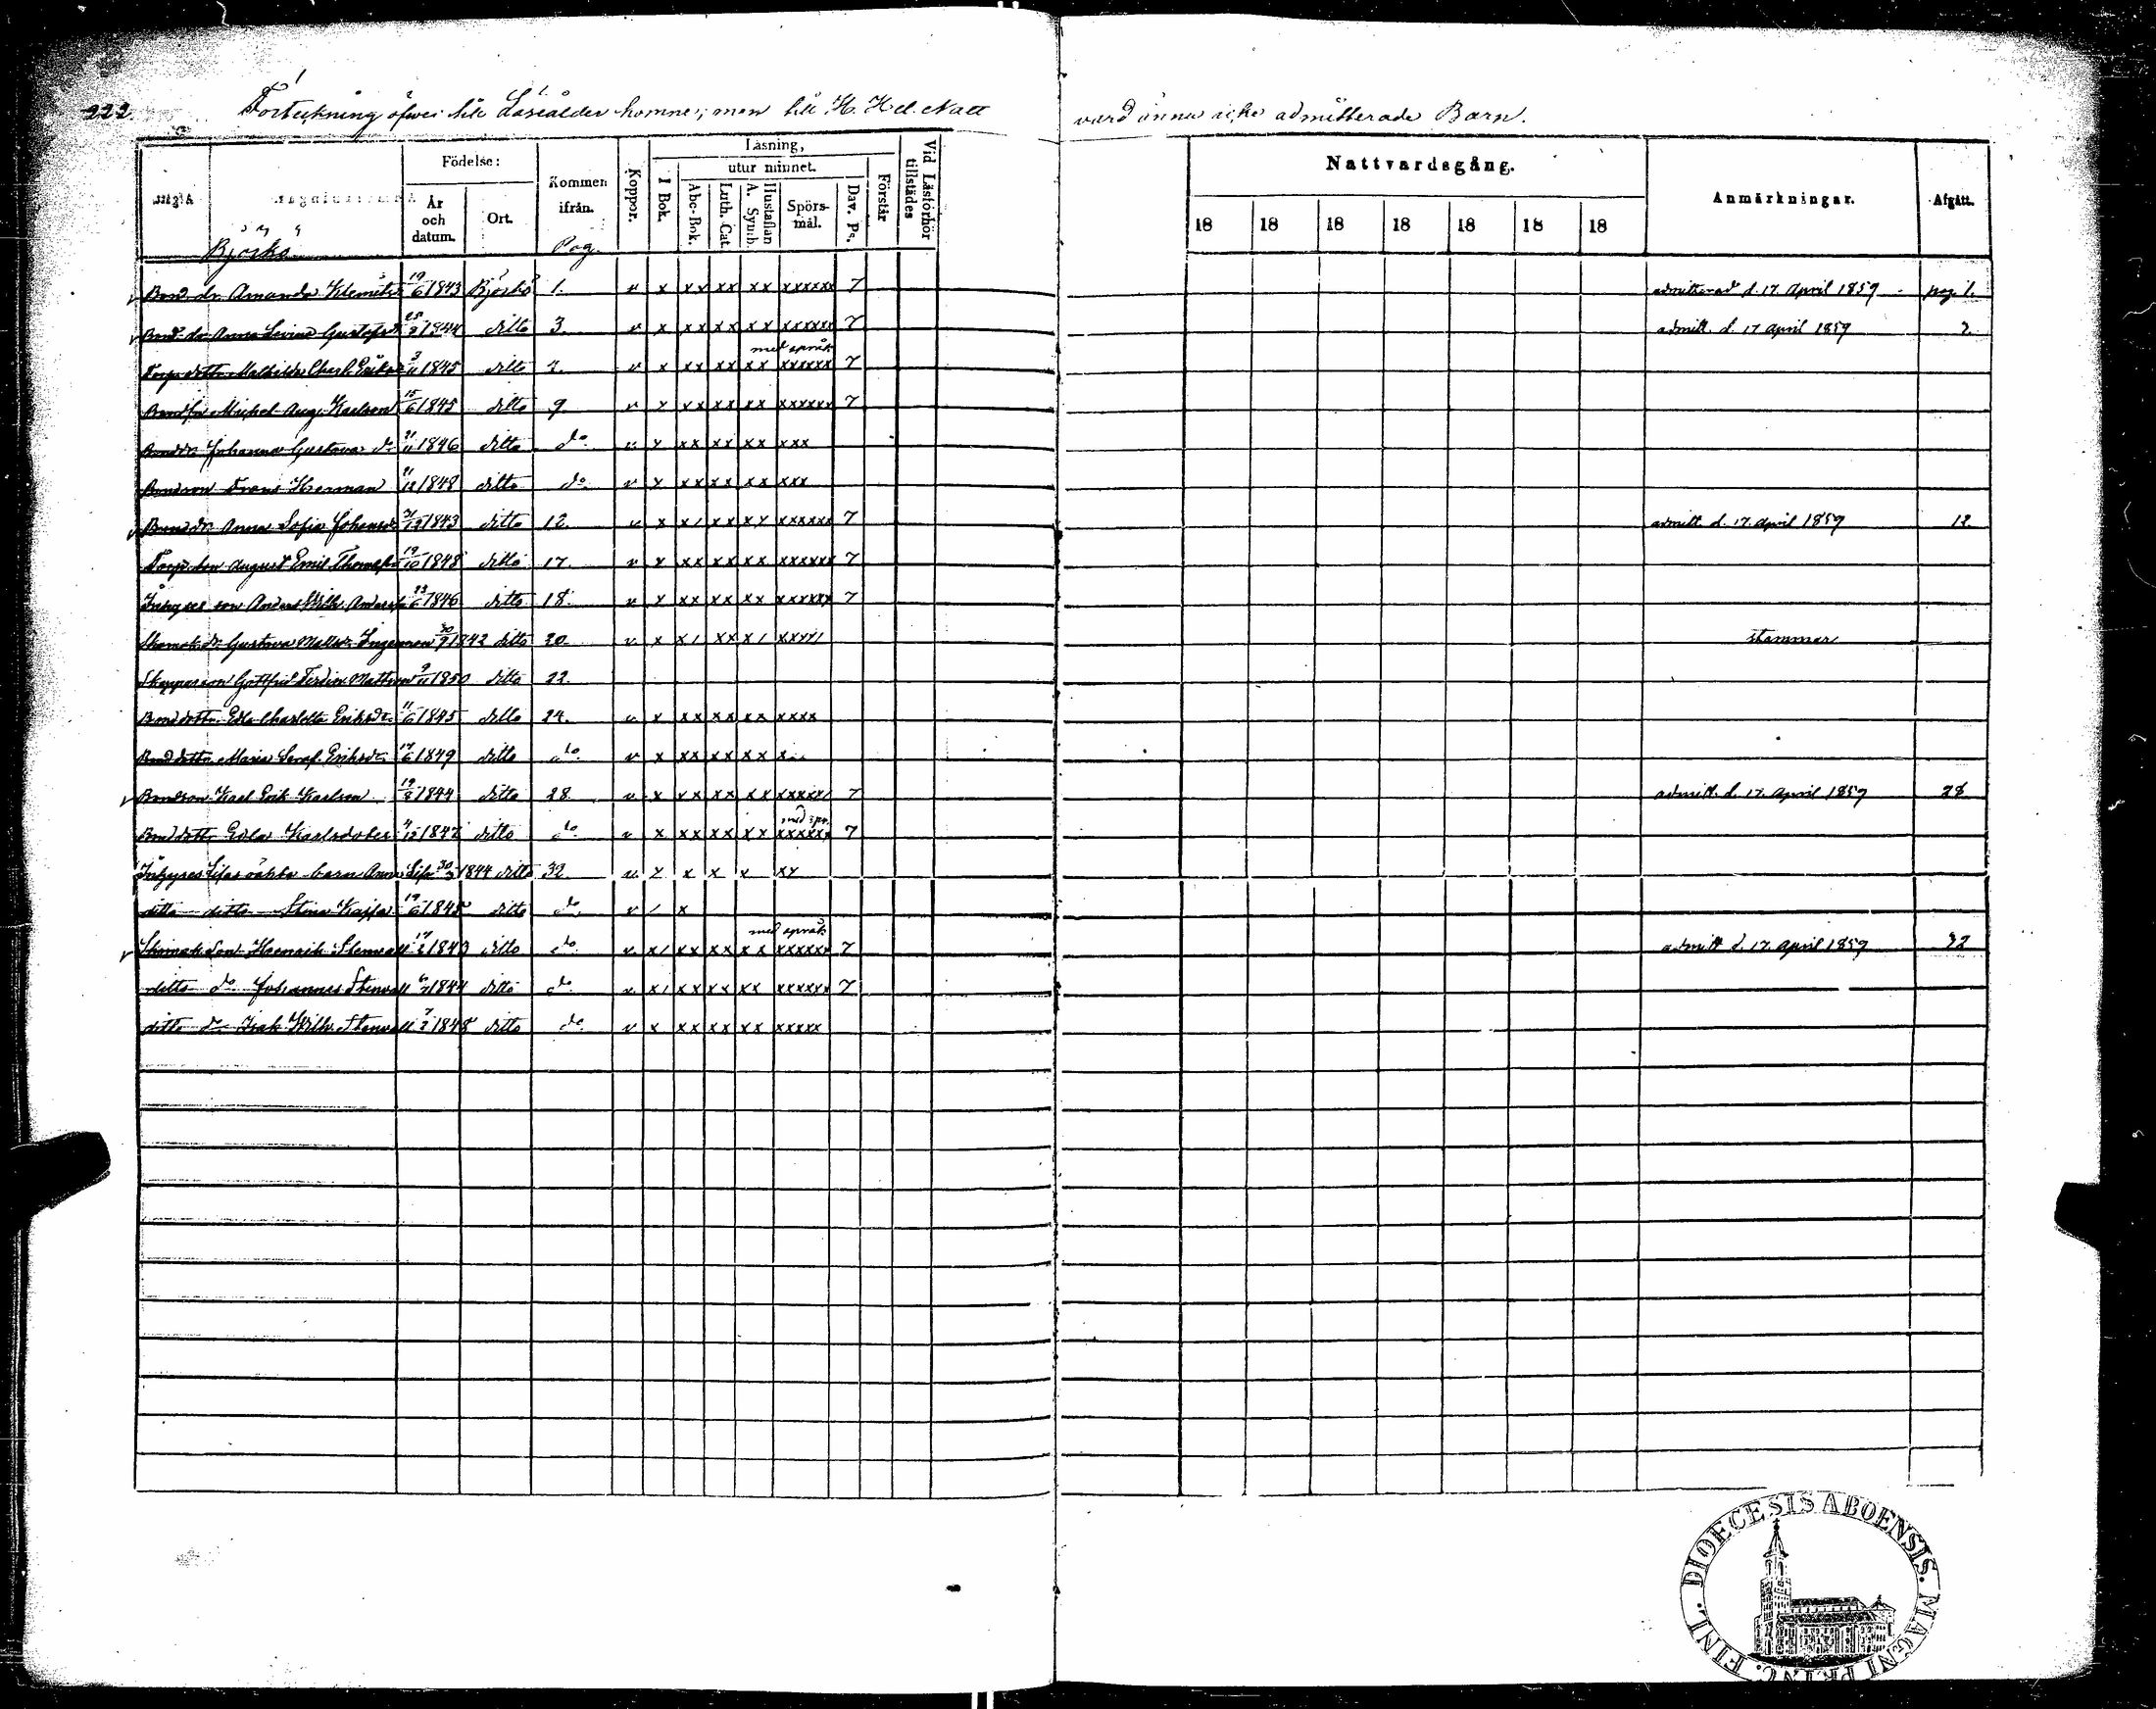 222.
Förteckning öfver till Läseålder komne; men till H. H. el. Natt
vard ännu icke admitterade Barn.
Födelse: Läsning, Nattvardsgång.
utur minnet.
År och datum. Ort. Kommen ifrån. Koppor. I Bok. Abc-Bok. Luth. Cat. Hustaflan A. Symb. Spörsmål. Dav. Ps. Förstår Vid Läsförhör tillstädes
18 18 18 18 18 18 18 Anmärkningar. Afgått.
Björkö Pag.
v Bond. dr. Amanda Klemets 19/6 1843 Björkö 1. v x xx xx xx xxxxxx 7 admitterad d. 17 April 1859 pag. 1.
v Bond. dr. Anna Lovisa Gustafsd. 1844 ditto 3. v x xx xx xx xxxxxx 7 admitt. d. 17 April 1859
med språk
Torp. dottr. Mathilda Charl. Eriksd. 1845 ditto 7. v x xx xx xx xxxxxx 7
Michel Aug. Karlson 15/6 1845 ditto 9 v x xx xx xx xxxxxx 7
Johanna Gustava do 21/11 1846 ditto do v x xx xx xx xxx
Bondson Frans Herman 11/12 1848 ditto do v x xx xx xx xxx
v Bond dr. Anna Sofia Johansd. 21/12 1843 ditto 12 v x x/ xx xx xxxxxx 7 admitt. d. 17 April 1859 12
Torp. son August Emil Thomass. 19/10 1848 ditto 17. v x xx xx xx xxxxxx 7
Inhyses son Anders Wilh. Anderss. 23/6 1846 ditto 18. v x xx xx xx xxxxxx 7
Skomak. dr. Gustava Matsd. Ingeman 30/9 1842 ditto 20. v x x/ xx x/ xxxx/ stammar
Skepparson Gottfrid Ferdin. Mattson 9/11 1850 ditto 22
Bond dottr. Eda Charlotta Eriksdr. 11/6 1845 ditto 24. v x xx xx xx xxxx
Bond dottr. Maria Seraf. Eriksdr. 17/6 1849 ditto do v x xx xx xx x
v Bondson Karl Erik Karlson 19/2 1844 ditto 28 v x xx xx xx xxxxx/ 7 admitt. d. 17 April 1859 28
med spr.
Bond dottr. Edla Karlsdoter 4/12 1847 ditto do v x xx xx xx xxxxxx 7
Inhyses Lisas oäkta barn Anna Lisa 30/3 1844 ditto 32 v x x x x xx
ditto ditto Stina Kajsa 19/6 1848 ditto do v / x
med språk
v Skomak. son Henrik Stenvall 17/2 1843 ditto do v x/ xx xx xx xxxxxx 7 admitt d. 17 April 1859 32
ditto do Johannes Stenvall 6/7 1844 ditto do v x/ xx xx xx xxxxxx 7
ditto do Isak Wilh. Stenvall 7/2 1848 ditto do v x xx xx xx xxxxx
DIOECESIS ABOENSIS. MAGNI PRINC. FINL.